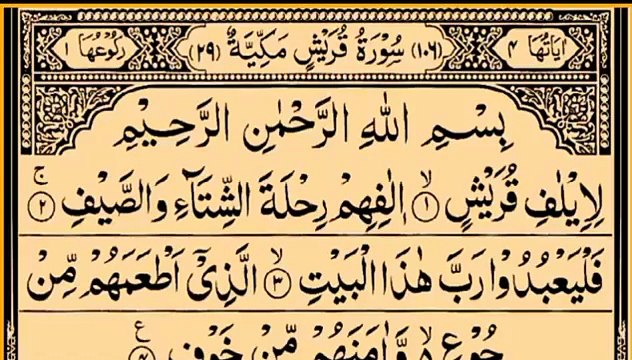 اٰيَاتُهَا ٤ (١٠٦) سُوْرَةُ قُرَيْشٍ مَكِّيَّةٌ (٢٩) رُكُوْعُهَا ١
بِسْمِ اللّٰهِ الرَّحْمٰنِ الرَّحِيْمِ
لِاِيْلٰفِ قُرَيْشٍ ۙ‏﴿١﴾ اٖلٰفِهِمْ رِحْلَةَ الشِّتَآءِ وَالصَّيْفِ ۚ‏﴿٢﴾
فَلْيَعْبُدُوْا رَبَّ هٰذَا الْبَيْتِ ۙ‏﴿٣﴾ الَّذِيْۤ اَطْعَمَهُمْ مِّنْ
جُوْعٍ ۙ وَّاٰمَنَهُمْ مِّنْ خَوْفٍ ﴿٤﴾ ع